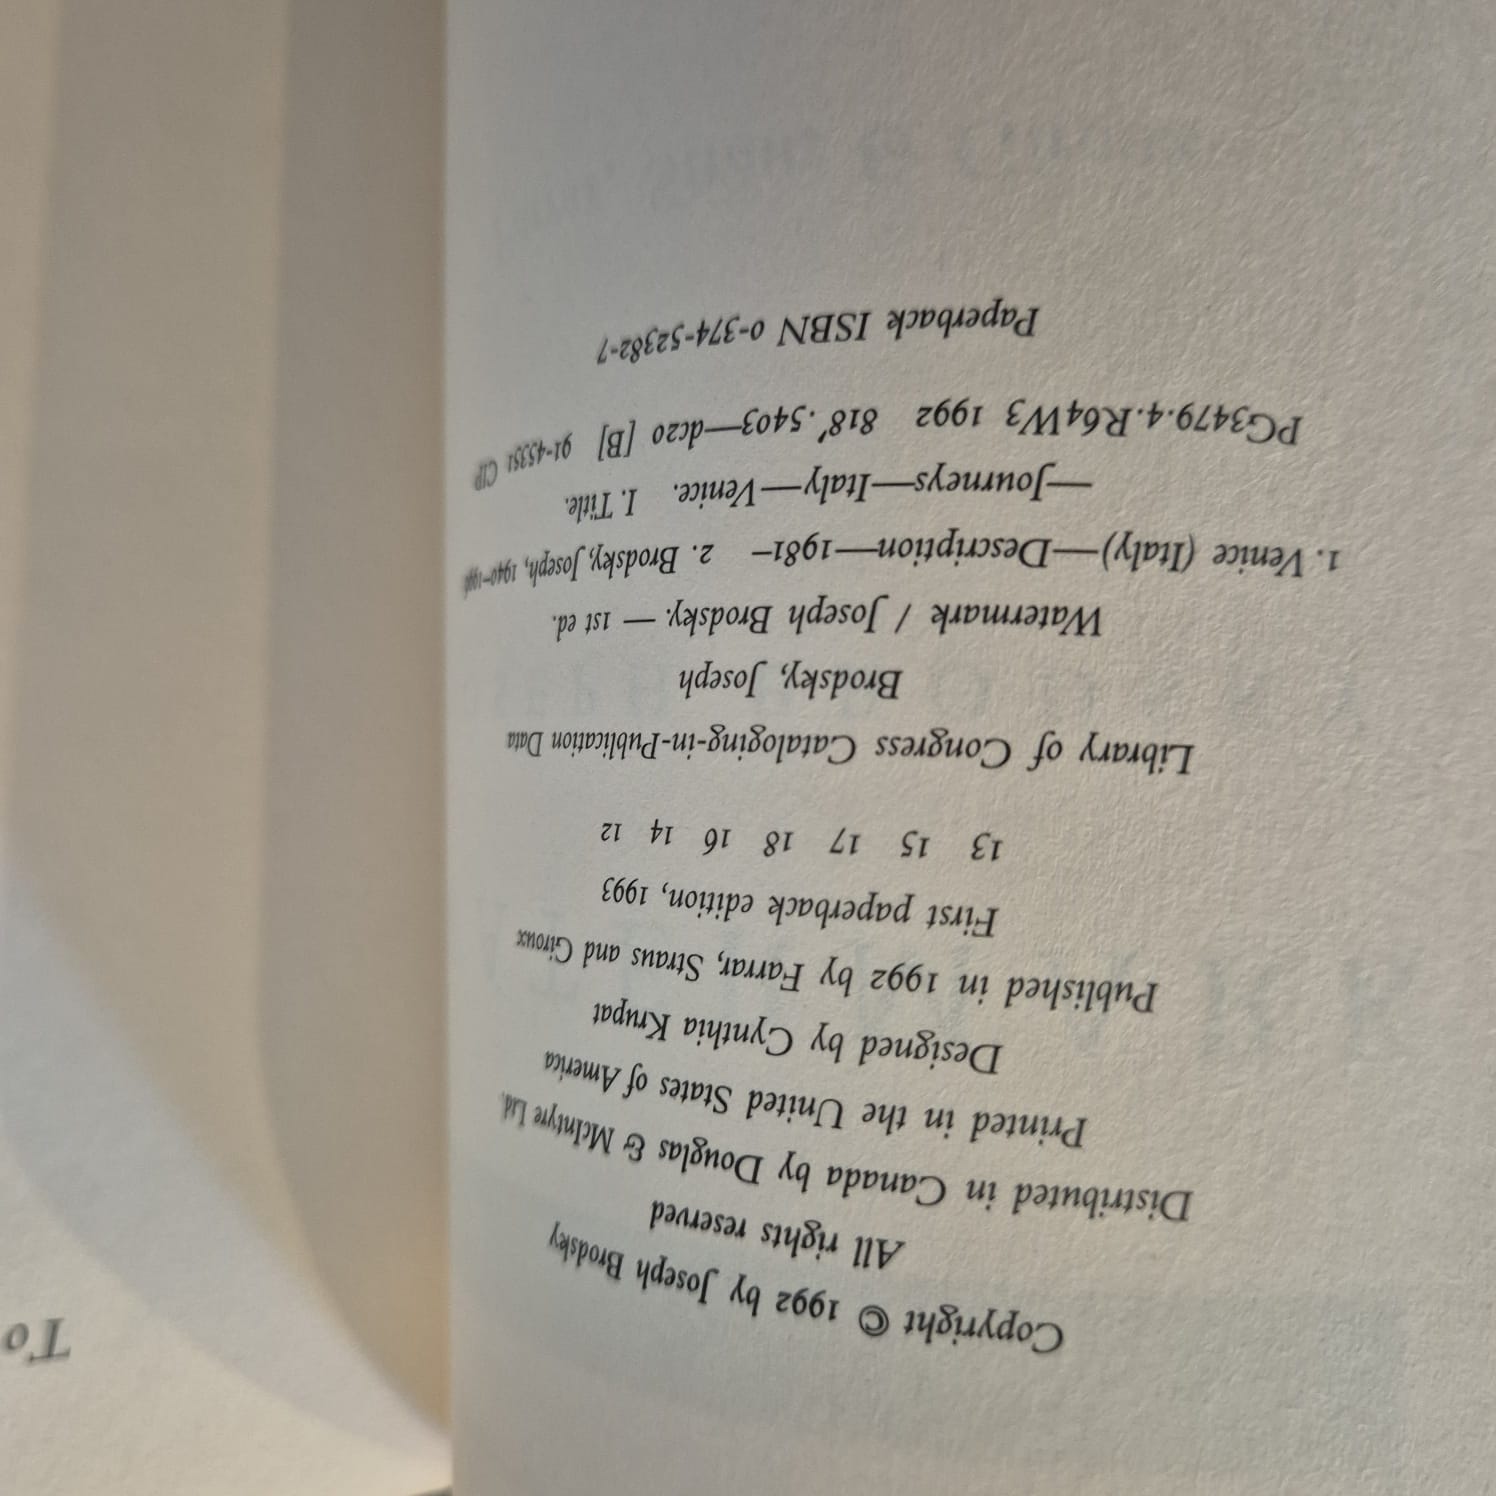 Copyright © 1992 by Joseph Brodsky
All rights reserved
Distributed in Canada by Douglas & McIntyre Ltd.
Printed in the United States of America
Designed by Cynthia Krupat
Published in 1992 by Farrar, Straus and Giroux
First paperback edition, 1993
13 15 17 18 16 14 12
Library of Congress Cataloging-in-Publication Data
Brodsky, Joseph
Watermark / Joseph Brodsky. — 1st ed.
1. Venice (Italy)—Description—1981– 2. Brodsky, Joseph, 1940–1996
—Journeys—Italy—Venice. I. Title.
PG3479.4.R64W3 1992 818'.5403—dc20 [B] 91-45351 CIP
Paperback ISBN 0-374-52382-7
To